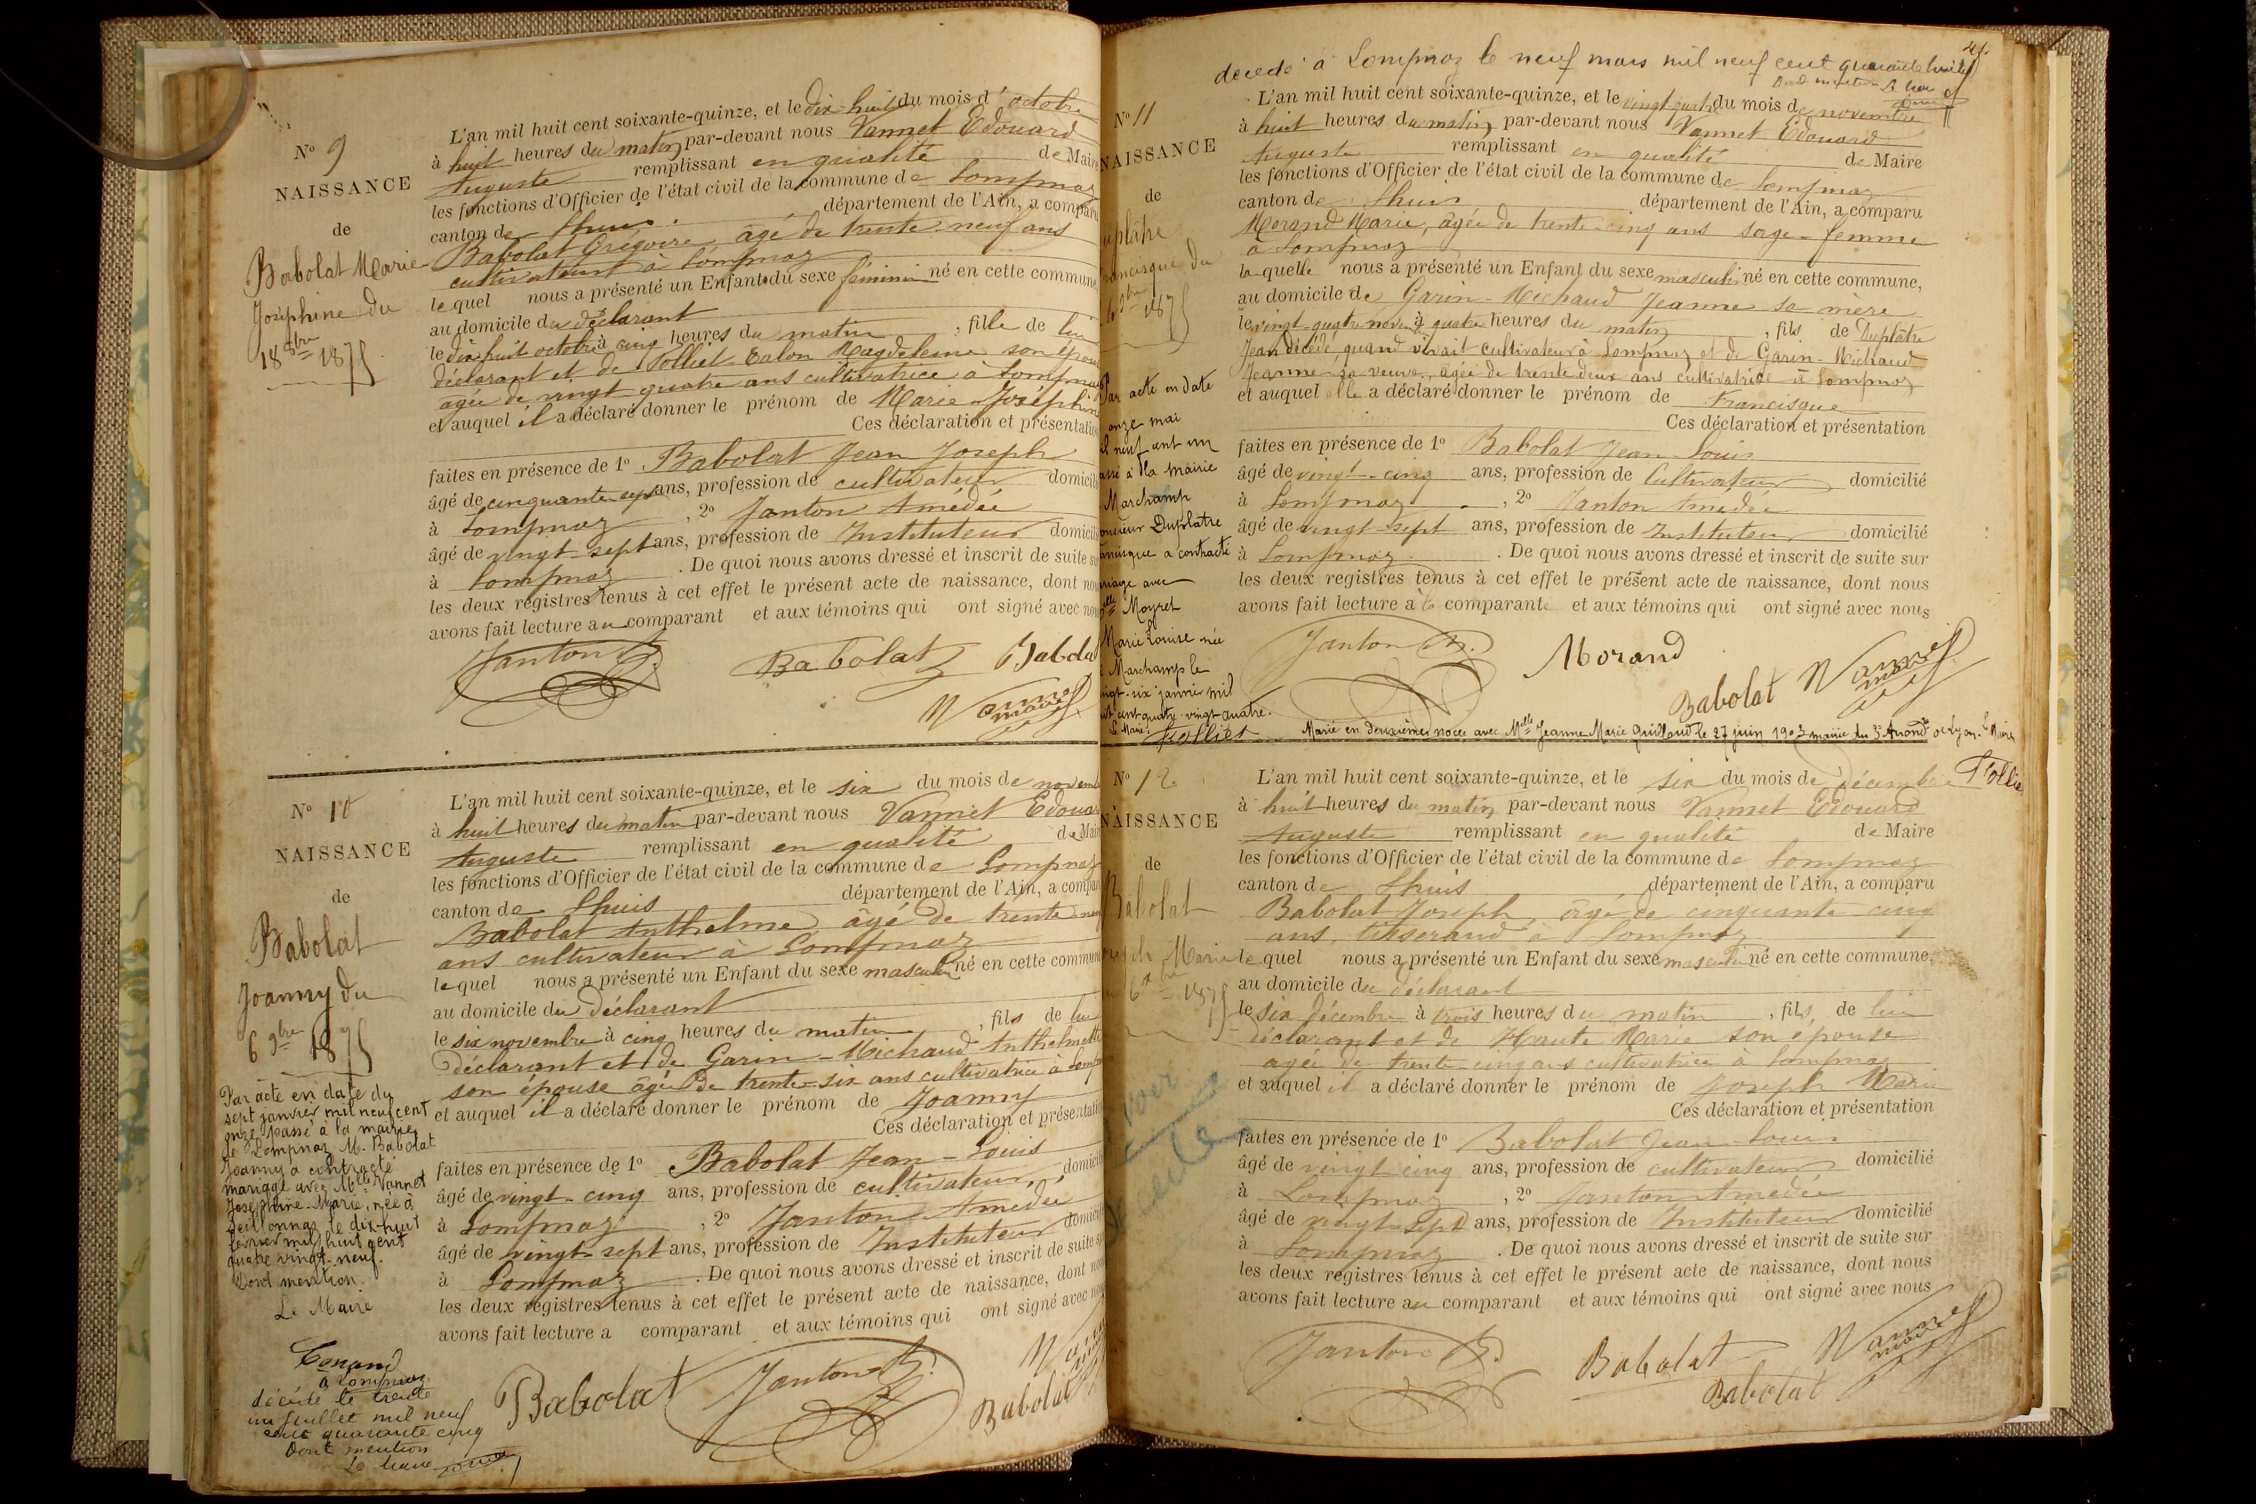 N° 9
NAISSANCE
de
Babolat Marie
Joséphine du
18 8bre 1875
L'an mil huit cent soixante-quinze, et le dix-huit du mois d'octobre
à huit heures du matin par-devant nous Vannet Edouard
Auguste remplissant en qualité de Maire
les fonctions d'Officier de l'état civil de la commune de Lompnaz
canton de Lhuis département de l'Ain, a comparu
Babolat Grégoire âgé de trente-neuf ans
cultivateur à Lompnaz
lequel nous a présenté un Enfant du sexe féminin né en cette commune,
au domicile du déclarant
le dix huit octobre à cinq heures du matin, fille de lui
déclarant et de Tolliet Magdeleine son épouse
agée de vingt quatre ans cultivatrice à Lompnaz
et auquel il a déclaré donner le prénom de Marie Joséphine
Ces déclaration et présentation
faites en présence de 1° Babolat Jean Joseph
âgé de cinquante sept ans, profession de cultivateur domicilié
à Lompnaz, 2° Janton Amédée
âgé de vingt-sept ans, profession de Instituteur domicilié
à Lompnaz. De quoi nous avons dressé et inscrit de suite sur
les deux registres tenus à cet effet le présent acte de naissance, dont nous
avons fait lecture au comparant et aux témoins qui ont signé avec nous
Janton
Babolat
Babolat
Vannet
maire
N° 10
NAISSANCE
de
Babolat
Joanny du
6 9bre 1875
Par acte en date du
sept janvier mil neuf cent
onze passé à la mairie
de Lompnaz M. Babolat
Joanny a contracté
mariage avec Mlle Vannet
Joséphine-Marie, née à
le dix-huit
février mil huit cent
quatre vingt-neuf.
Dont mention.
Le Maire
à Lompnaz
décédé le trente
un juillet mil neuf
cent quarante cinq
Dont mention
Le Maire
L'an mil huit cent soixante-quinze, et le six du mois de novembre
à huit heures du matin par-devant nous Vannet Edouard
Auguste remplissant en qualité de Maire
les fonctions d'Officier de l'état civil de la commune de Lompnaz
canton de Lhuis département de l'Ain, a comparu
Babolat Anthelme âgé de trente-neuf
ans cultivateur à Lompnaz
lequel nous a présenté un Enfant du sexe masculin né en cette commune
au domicile du déclarant
le six novembre à cinq heures du matin, fils de lui
déclarant et de Garin-Michaud Anthelmette
son épouse âgée de trente-six ans cultivatrice à Lompnaz
et auquel il a déclaré donner le prénom de Joanny
Ces déclaration et présentation
faites en présence de 1° Babolat Jean-Louis
âgé de vingt-cinq ans, profession de cultivateur, domicilié
à Lompnaz, 2° Janton Amédée
âgé de vingt-sept ans, profession de Instituteur domicilié
à Lompnaz. De quoi nous avons dressé et inscrit de suite sur
les deux registres tenus à cet effet le présent acte de naissance, dont nous
avons fait lecture a comparant et aux témoins qui ont signé avec nous
Babolat
Janton
Babolat
décédé à Lompnaz le neuf mars mil neuf cent quarante huit
Dont mention Le Maire
N° 11
NAISSANCE
de
uplâtre
ancisque du
9bre 1875
Par acte en date
onze mai
il neuf cent un
assé à la mairie
Marchamp
onsieur Duplatre
ancisque a contracté
riage avec
Mlle Moyret
Marie Louise née
Marchamp le
ingt-six janvier mil
uit cent quatre-vingt-quatre.
Le Maire
Tolliet
L'an mil huit cent soixante-quinze, et le vingt-quatre du mois de novembre
à huit heures du matin par-devant nous Vannet Edouard
Auguste remplissant en qualité de Maire
les fonctions d'Officier de l'état civil de la commune de Lompnaz
canton de Lhuis département de l'Ain, a comparu
Morand Marie, âgée de trente-cinq ans sage-femme
à Lompnaz
laquelle nous a présenté un Enfant du sexe masculin né en cette commune,
au domicile de Garin-Michaud Jeanne sa mère
le vingt-quatre novembre à quatre heures du matin, fils de Duplâtre
Jean décédé, quand vivait cultivateur à Lompnaz et de Garin-Michaud
Jeanne sa veuve, âgée de trente deux ans cultivatrice à Lompnaz
et auquel elle a déclaré donner le prénom de Francisque
Ces déclaration et présentation
faites en présence de 1° Babolat Jean-Louis
âgé de vingt-cinq ans, profession de Cultivateur domicilié
à Lompnaz, 2° Janton Amédée
âgé de vingt-sept ans, profession de Instituteur domicilié
à Lompnaz. De quoi nous avons dressé et inscrit de suite sur
les deux registres tenus à cet effet le présent acte de naissance, dont nous
avons fait lecture à la comparante et aux témoins qui ont signé avec nous
Janton
Morand
Babolat
Vannet
maire
Marié en deuxièmes noces avec Mlle Jeanne Marie Guilland le 27 juin 1903 mairie du 3e Arrondt de Lyon. Le Maire
Tolliet
N° 12
NAISSANCE
de
Babolat
seph Marie
6 1875
L'an mil huit cent soixante-quinze, et le six du mois de décembre
à huit heures du matin par-devant nous Vannet Edouard
Auguste remplissant en qualité de Maire
les fonctions d'Officier de l'état civil de la commune de Lompnaz
canton de Lhuis département de l'Ain, a comparu
Babolat Joseph, âgé de cinquante cinq
ans, tisserand à Lompnaz
lequel nous a présenté un Enfant du sexe masculin né en cette commune,
au domicile du déclarant
le six décembre à trois heures du matin, fils de lui
déclarant et de Haute Marie son épouse
agée de trente-cinq ans cultivatrice à Lompnaz
et auquel il a déclaré donner le prénom de Joseph Marie
Ces déclaration et présentation
faites en présence de 1° Babolat Jean-Louis
âgé de vingt cinq ans, profession de cultivateur domicilié
à Lompnaz, 2° Janton Amédée
âgé de vingt-sept ans, profession de Instituteur domicilié
à Lompnaz. De quoi nous avons dressé et inscrit de suite sur
les deux registres tenus à cet effet le présent acte de naissance, dont nous
avons fait lecture au comparant et aux témoins qui ont signé avec nous
Janton
Babolat
Babolat
Vannet
maire